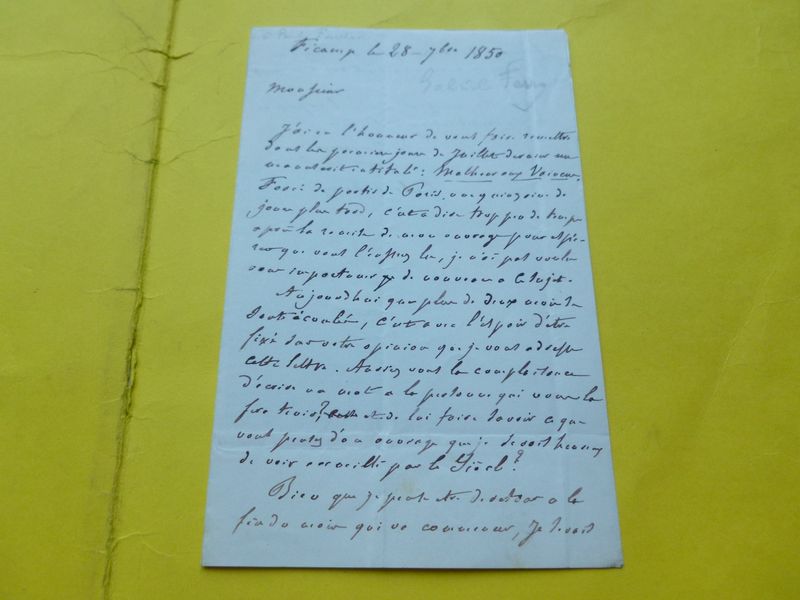 Fécamp le 28 7bre 1850
Gabriel Ferry
Monsieur
J'ai eu l'honneur de vous faire remettre
dans les premiers jours de Juillet dernier un
manuscrit intitulé: Malheureux Vainqueur.
Forcé de partir de Paris une quinzaine de
jours plus tard, c'est à dire trop peu de temps
après la remise de mon ouvrage pour espérer
que vous l'eussiez lu, je n'ai pas voulu
vous importuner de nouveau à ce sujet.
Aujourd'hui que plus de deux mois se
sont écoulés, c'est avec l'espoir d'être
fixé sur votre opinion que je vous adresse
cette lettre. Auriez vous la complaisance
d'écrire un mot à la personne qui vous la
fera tenir, et de lui faire savoir ce que
vous pensez d'un ouvrage que je serais heureux
de voir accueilli par le Siècle?
Bien que je pense être de retour à la
fin du mois qui va commencer, je serais